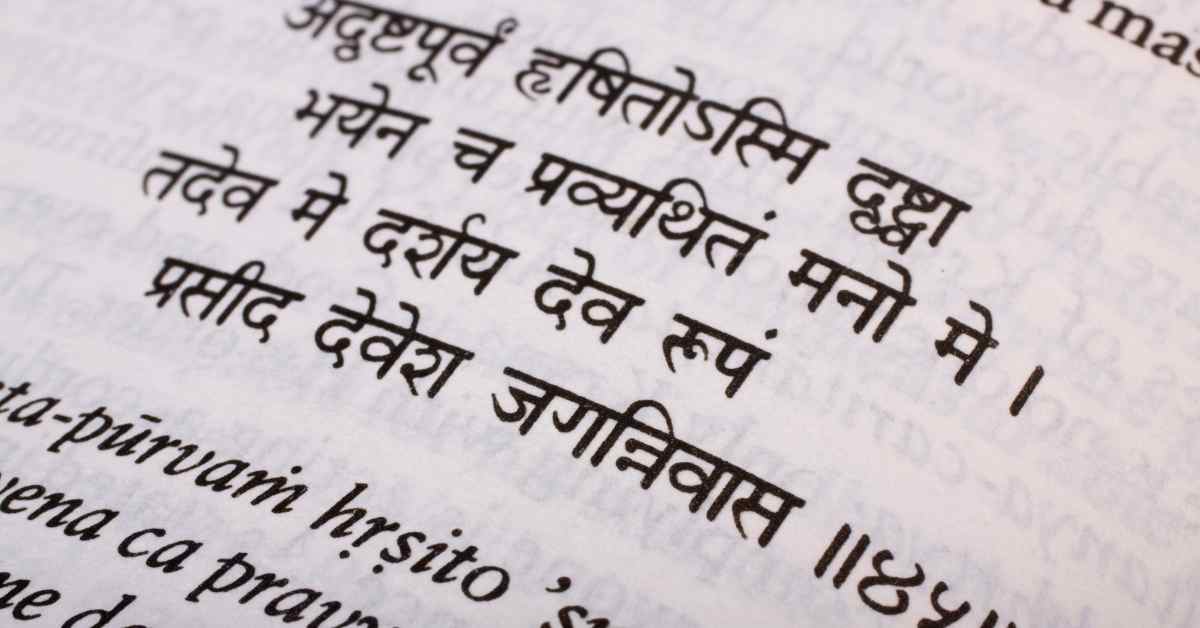 mas
अदृष्टपूर्वं हृषितोऽस्मि दृष्ट्वा
भयेन च प्रव्यथितं मनो मे ।
तदेव मे दर्शय देव रूपं
प्रसीद देवेश जगन्निवास ॥४५॥
ta-pūrvaṁ hṛṣito ’s
ena ca prav
me da